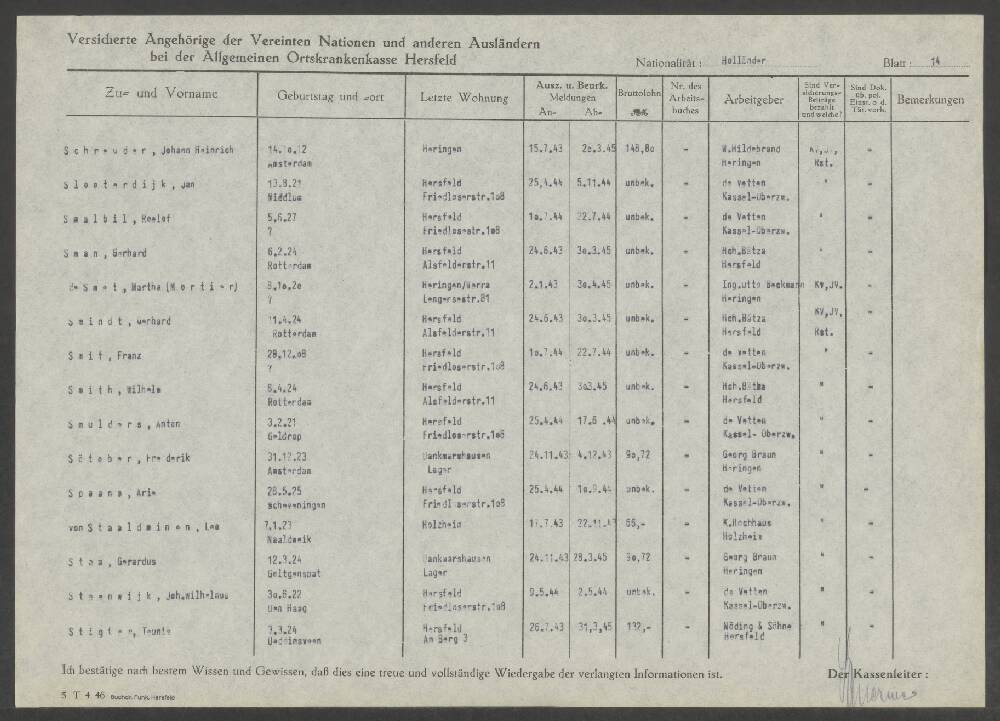 Versicherte Angehörige der Vereinten Nationen und anderen Ausländern
bei der Allgemeinen Ortskrankenkasse Hersfeld
Nationalität: Holländer Blatt: 14
Zu= und Vorname Geburtstag und =ort Letzte Wohnung Ausz. u. Beurk. Meldungen An- Ab- Bruttolohn Nr. des Arbeits-buches Arbeitgeber Sind Ver-sicherungs-Beiträge bezahlt und welche? Sind Dok. üb. pol. Einst. o. d. Tät. vork. Bemerkungen
Schreuder, Johann Heinrich 14.10.12 Heringen 15.7.43 148,80 - W.Hildebrand -
Amsterdam Heringen Kst.
Slooterdijk, Jan 13.8.21 Hersfeld 25.4.44 5.11.44 unbek. - de Vetten " -
Middlum Friedloserstr.108 Kassel-Überzw.
Smalbil, Roelof 5.6.27 Hersfeld 10.7.44 22.7.44 unbek. - de Vetten " -
? Friedloserstr.108 Kassel-Überzw.
Sman, Gerhard 6.2.24 Hersfeld 24.6.43 30.3.45 unbek. - Hch.Bätza -
Rotterdam Alsfelderstr.11 Hersfeld
de Smet, Martha (Mortier) 8.10.20 Heringen/Werra 2.1.43 30.4.45 unbek. - Ing.Otto Beckmann KV,JV. -
? Lengersstr.81 Heringen
Smindt, Gerhard 11.4.24 Hersfeld 24.6.43 30.3.45 unbek. - Hch.Bätza KV,JV. -
Rotterdam Alsfelderstr.11 Hersfeld Kst.
Smit, Franz 28.12.08 Hersfeld 10.7.44 22.7.44 unbek. - de Vetten " -
? Friedloserstr.108 Kassel-Überzw.
Smith, Wilhelm 8.4.24 Hersfeld 24.6.43 303.45 unbek. - Hch.Bätza " -
Rotterdam Alsfelderstr.11 Hersfeld
Smulders, Anton 3.2.21 Hersfeld 25.4.44 17.6.44 unbek. - de Vetten " -
Geldrop Friedloserstr.108 Kassel- Überzw.
Söteber, Frederik 31.12.23 Dankmarshausen 24.11.43 4.12.43 90,72 - Georg Braun " -
Amsterdam Lager Heringen
Spaans, Arie 28.5.25 Hersfeld 25.4.44 10.9.44 unbek. - de Vetten " -
Scheveningen Friedloserstr.108 Kassel-Überzw.
von Staaldminen, Leo 7.1.23 Holzheim 17.7.43 22.11.43 66,- - K.Hochhaus " -
Naaldweik Holzheim
Stam, Gerardus 12.3.24 Dankmarshausen 24.11.43 28.3.45 90,72 - Georg Braun " -
Lager Heringen
Steenwijk, Joh.Wilhelmus 30.6.22 Hersfeld 9.5.44 2.5.44 unbek. - de Vetten " -
Den Haag Friedloserstr.108 Kassel-Überzw.
Stigter, Teunis 7.3.24 Hersfeld 26.7.43 31.3.45 132,- - Nöding & Söhne " -
Am Berg 3 Hersfeld
Ich bestätige nach bestem Wissen und Gewissen, daß dies eine treue und vollständige Wiedergabe der verlangten Informationen ist. Der Kassenleiter:
5 T 4 46 Buchdr. Funk, Hersfeld